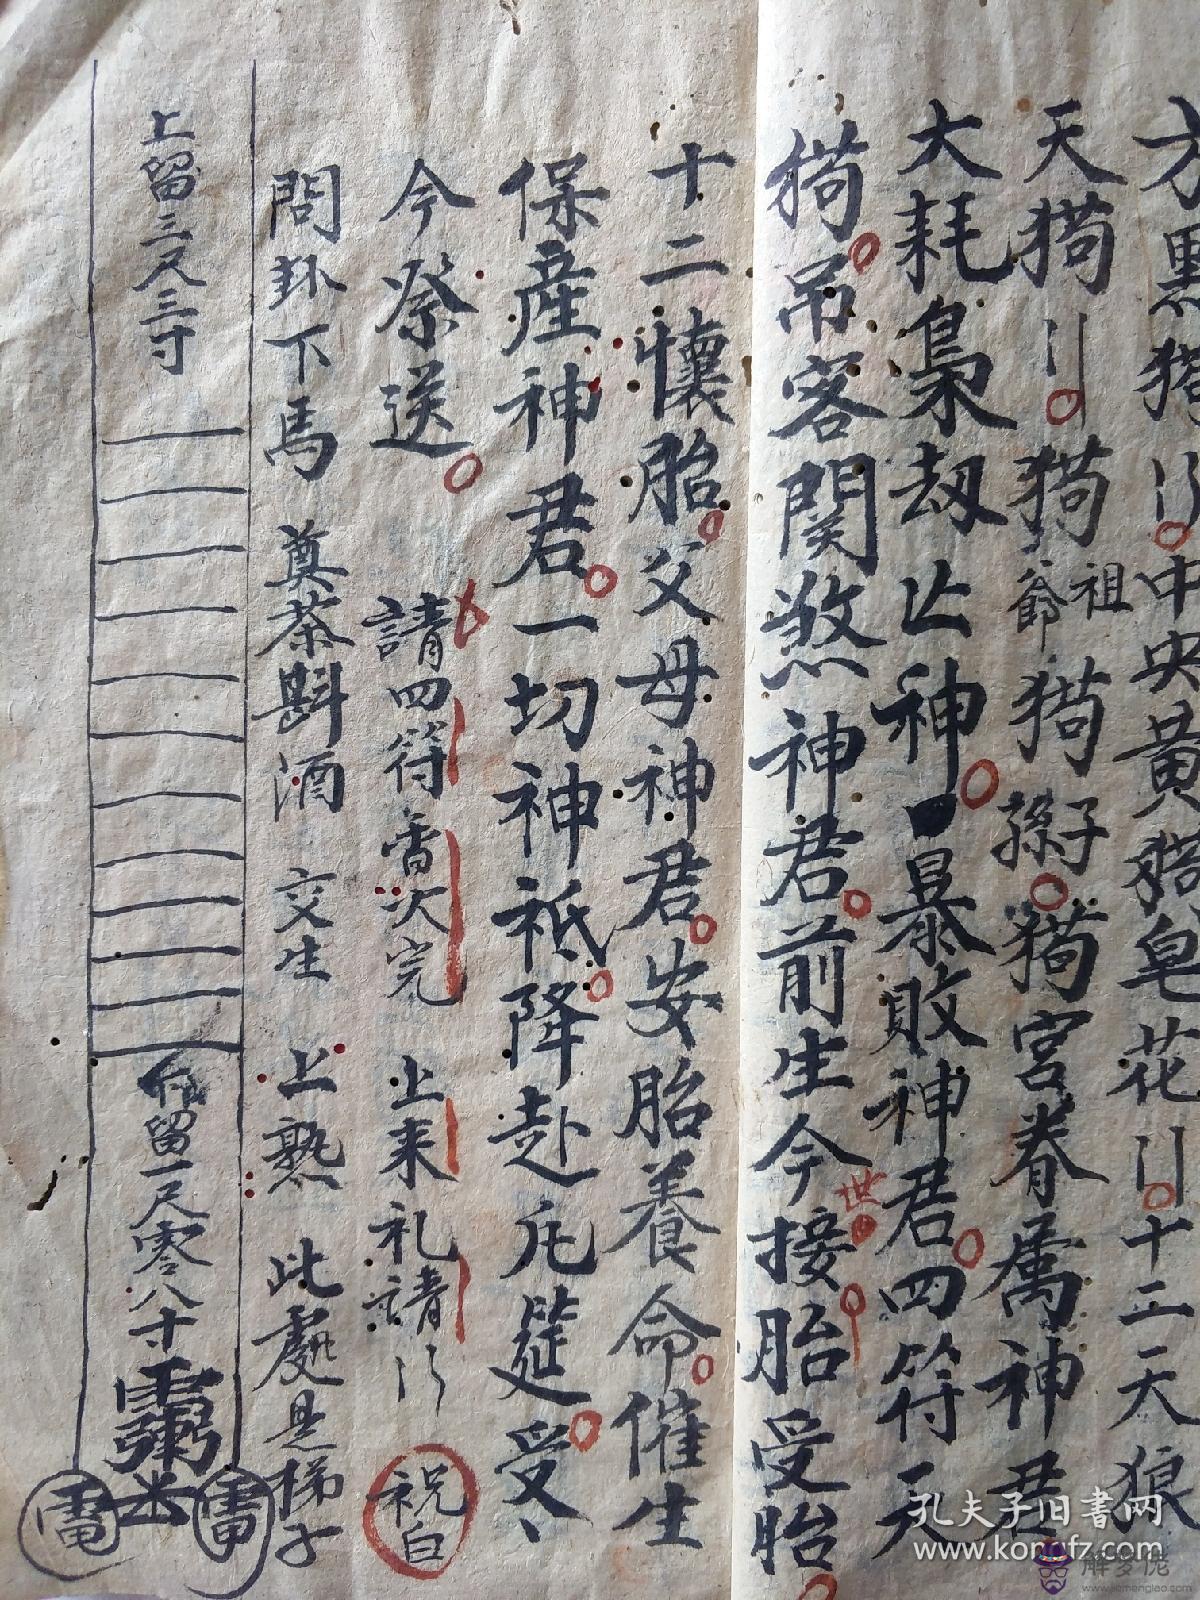 方黑猪〢中央黄猪皂花〢十二天狼
天狗〢狗爺祖狗孫子狗宫眷属神君
大耗梟劫亡神暴敗神君四符天
狗吊客関煞神君前生今世接胎受胎
十二懷胎父母神君安胎養命催生
保産神君一切神祇降赴凡筵受〻
今祭送 請四符香次完 上来礼請〢 祝白
問卦下馬 奠茶斟酒 交生 上熟 此處是梯子
上留三尺三寸
留一尺零八寸
孔夫子旧书网
www.kongfz.com
解梦佬
www.jiemenglao.com